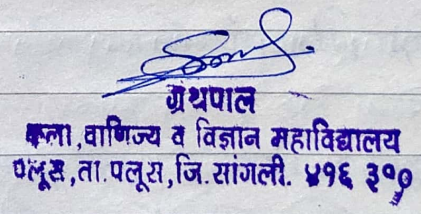 ग्रंथपाल
कला,वाणिज्य व विज्ञान महाविद्यालय
पलूस,ता.पलूस,जि.सांगली. ४१६ ३१०